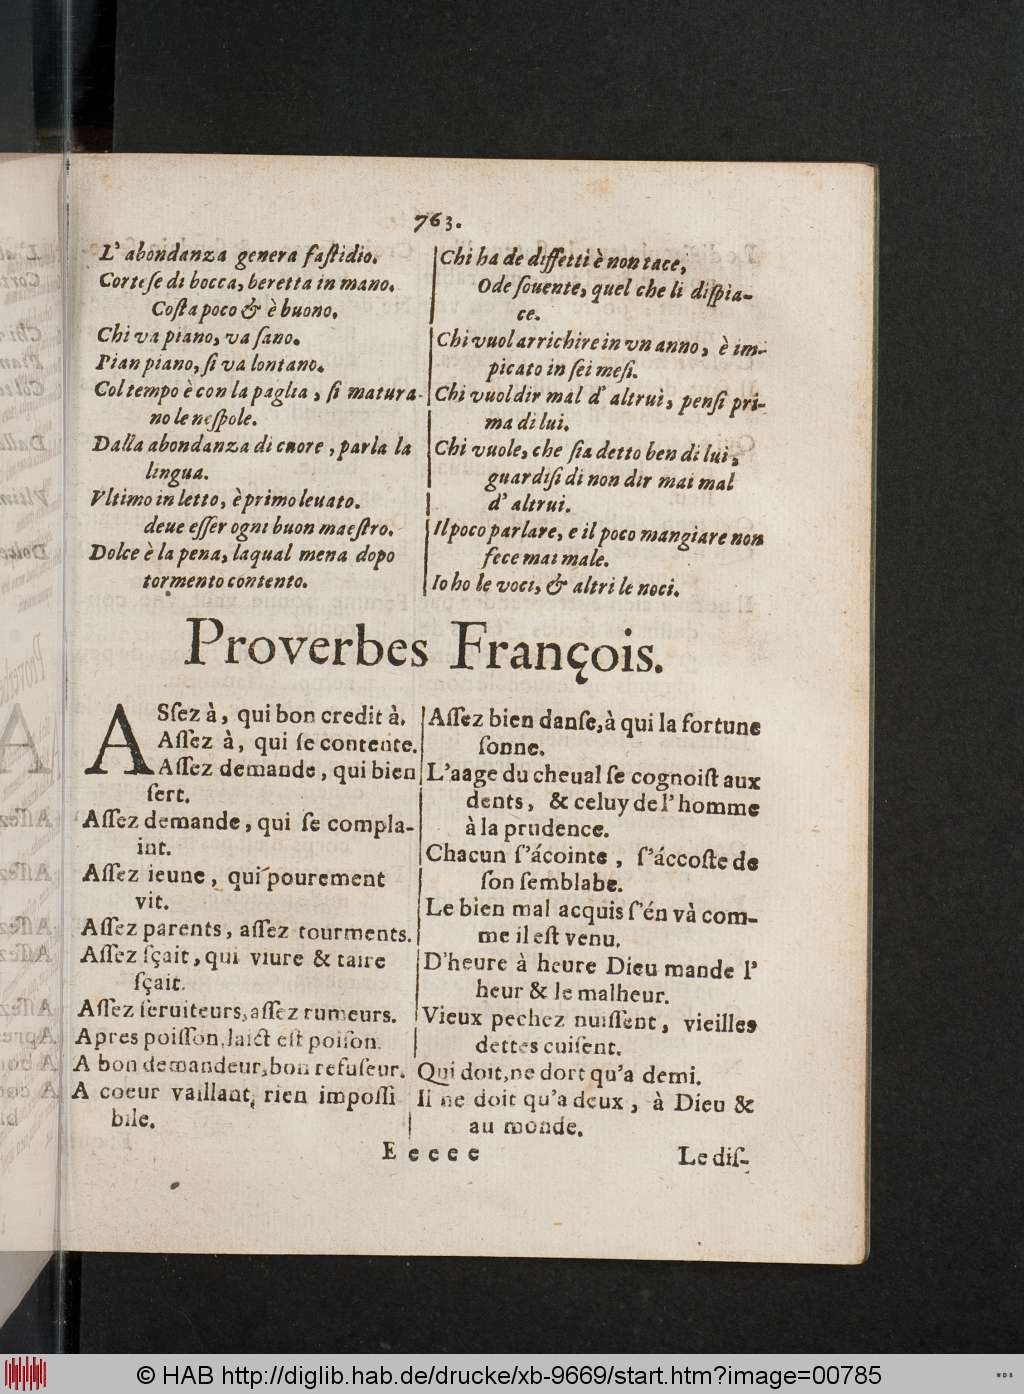 763.
L' abondanza genera faſtidio.
Corteſe di bocca, beretta in mano.
Coſta poco & è buono.
Chi va piano, va ſano.
Pian piano, ſi va lontano.
Col tempo è con la paglia, ſi matura-
no le neſpole.
Dalla abondanza di cuore, parla la
lingua.
Vltimo in letto, è primo leuato.
deue eſſer ogni buon maeſtro.
Dolce è la pena, laqual mena dopo
tormento contento.
Chi ha de diffetti è non tace,
Ode ſouente, quel che li diſpia-
ce.
Chi vuol arrichire in vn anno, è im-
picato in ſei meſi.
Chi vuol dir mal d' altrui, penſi pri-
ma di lui.
Chi vuole, che ſia detto ben di lui,
guardiſi di non dir mai mal
d' altrui.
Il poco parlare, e il poco mangiare non
fece mai male.
Io ho le voci, & altri le noci.
Proverbes François.
ASſez à, qui bon credit à.
Aſſez à, qui ſe contente.
Aſſez demande, qui bien
ſert.
Aſſez demande, qui ſe compla-
int.
Aſſez ieune, qui pourement
vit.
Aſſez parents, aſſez tourments.
Aſſez ſçait, qui viure & taire
ſçait.
Aſſez ſeruiteurs, aſſez rumeurs.
Apres poiſſon, laict eſt poiſon.
A bon demandeur, bon refuſeur.
A coeur vaillant, rien impoſſi
bile.
Aſſez bien danſe, à qui la fortune
ſonne.
L'aage du cheual ſe cognoiſt aux
dents, & celuy de l' homme
à la prudence.
Chacun ſ'ácointe, ſ'áccoſte de
ſon ſemblabe.
Le bien mal acquis ſ'én và com-
me il eſt venu.
D'heure à heure Dieu mande l'
heur & le malheur.
Vieux pechez nuiſſent, vieilles
dettes cuiſent.
Qui doit, ne dort qu'a demi.
Il ne doit qu'a deux, à Dieu &
au monde.
E e e e e
Le diſ-
© HAB http://diglib.hab.de/drucke/xb-9669/start.htm?image=00785